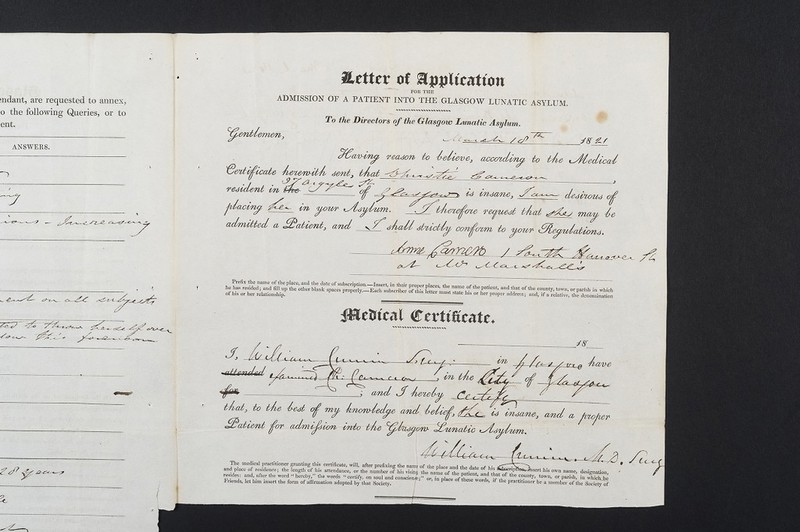 endant, are requested to annex,
o the following Queries, or to
ent.
ANSWERS.
ious - Increasing
ent on all subjects
ted to throw herself over
28 years
Letter of Application
FOR THE
ADMISSION OF A PATIENT INTO THE GLASGOW LUNATIC ASYLUM.
To the Directors of the Glasgow Lunatic Asylum.
March 10th 1821
Gentlemen,
Having reason to believe, according to the Medical
Certificate herewith sent, that Christie Cameron,
resident in the 37 Argyle St. of Glasgow is insane, I am desirous of
placing her in your Asylum. I therefore request that she may be
admitted a Patient, and I shall strictly conform to your Regulations.
Anne Cameron 1 South Hanover St
at Mr Marshalls
Prefix the name of the place, and the date of subscription.—Insert, in their proper places, the name of the patient, and that of the county, town, or parish in which
he has resided; and fill up the other blank spaces properly.—Each subscriber of this letter must state his or her proper address; and, if a relative, the denomination
of his or her relationship.
Medical Certificate.
18
I, William Cumin Surg: in Glasgow have
attended examined Ch: Cameron, in the City of Glasgow
for ; and I hereby Certify
that, to the best of my knowledge and belief, she is insane, and a proper
Patient for admission into the Glasgow Lunatic Asylum.
William Cumin M.D. Surg
The medical practitioner granting this certificate, will, after prefixing the name of the place and the date of his subscription, insert his own name, designation,
and place of residence; the length of his attendance, or the number of his visits; the name of the patient, and that of the county, town, or parish, in which he
resides: and, after the word "hereby," the words "certify, on soul and conscience;" or, in place of these words, if the practitioner be a member of the Society of
Friends, let him insert the form of affirmation adopted by that Society.